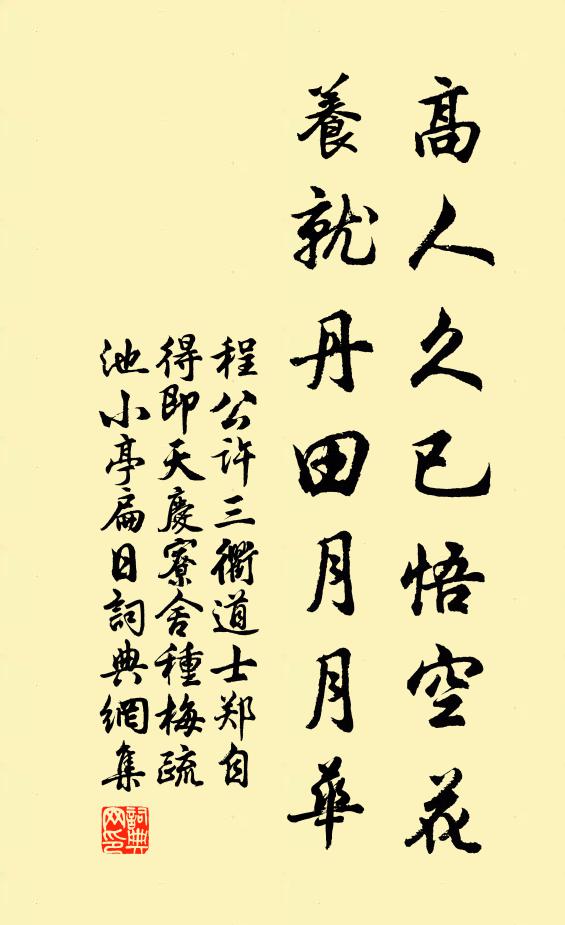 高人久已悟空花
養就丹田月月華
程公许三衢道士郑自
得即天慶寮舍種梅疏
池小亭扁日詞典網集
詞典网印